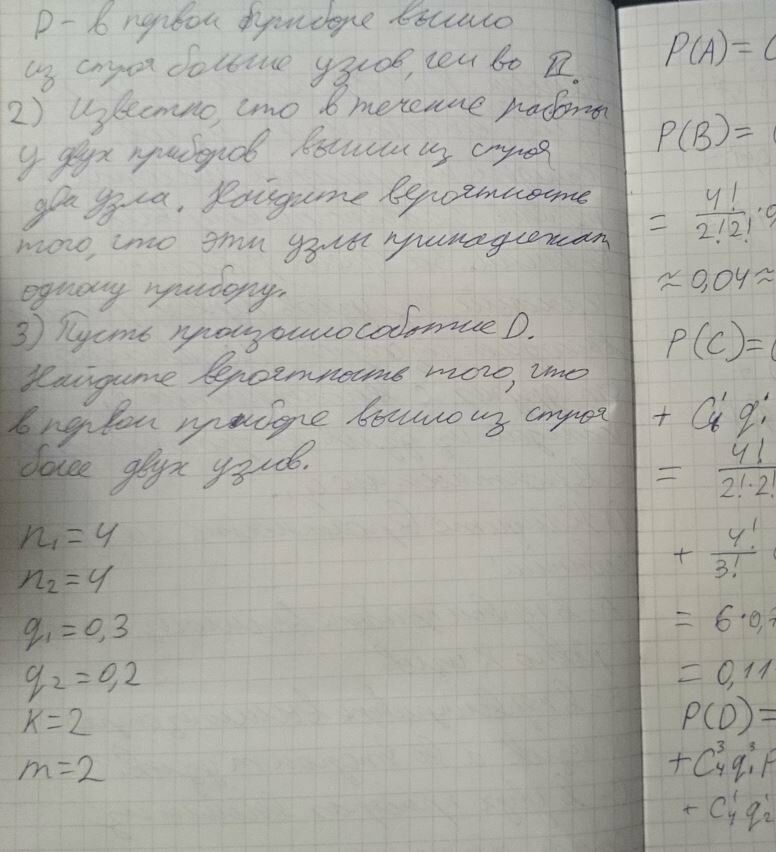 D - в первом приборе вышло
из строя больше узлов, чем во II.
2) Известно, что в течение работы
у двух приборов вышли из строя
два узла. Найдите вероятность
того, что эти узлы принадлежат
одному прибору.
3) Пусть произошло событие D.
Найдите вероятность того, что
в первом приборе вышло из строя
более двух узлов.
n₁ = 4
n₂ = 4
q₁ = 0,3
q₂ = 0,2
k = 2
m = 2
P(A) = (
P(B) = (
= 4!/2!2! · 0,
≈ 0,04 ≈
P(C) = (
+ C₄¹ q₁¹
= 4!/2!·2!
+ 4!/3!
= 6 · 0,
= 0,11
P(D) =
+ C₄³ q₁³ p
+ C₄¹ q₂¹